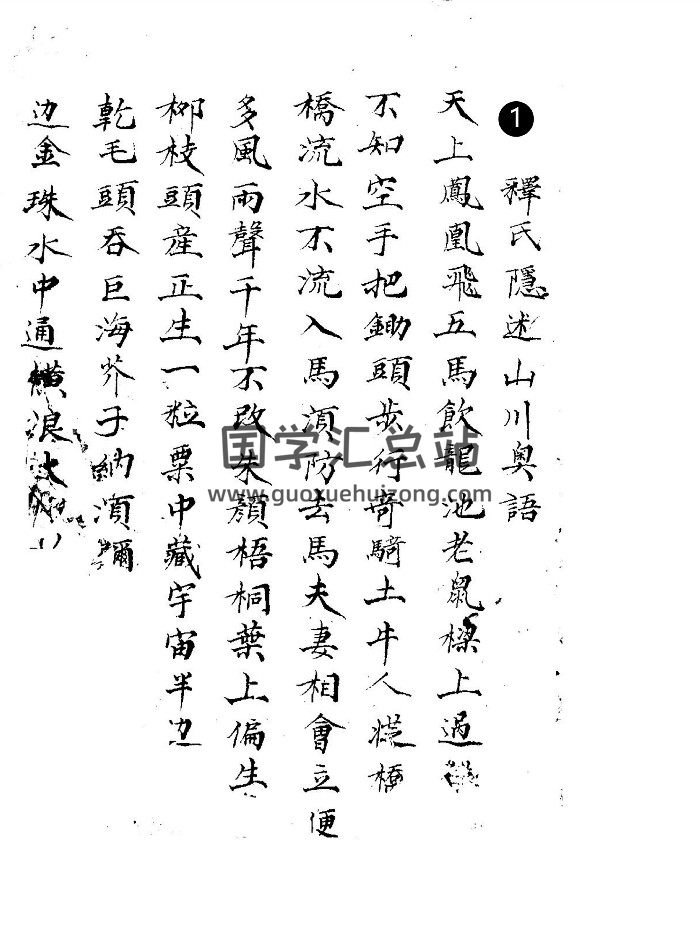 1
釋氏隱述山川奧語
天上鳳凰飛五馬飲龍池老鼠樑上過
不知空手把鋤頭步行騎土牛人從橋
橋流水不流入馬湏防去馬夫妻相會立便
多風雨聲千年不改朱顏梧桐葉上偏生
柳枝頭産正生一粒粟中藏宇宙半边
乾毛頭吞巨海芥子納湏彌
边金珠水中通浪
国学汇总站
www.guoxuehuizong.com